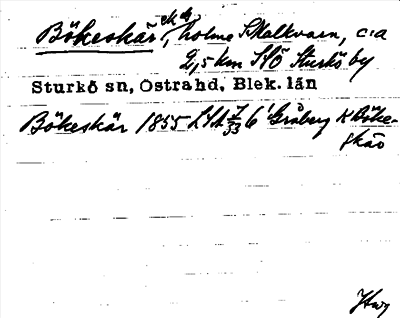 Bökeskär, holme S Malkvarn, c:a
2,5 km SSÖ Sturkö by
Sturkö sn, Östra hd, Blek. län
Bökeskär 1855 LSA 6 Gråberg K Böke-
skär